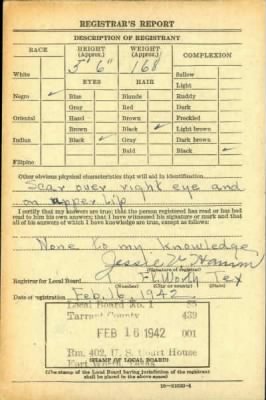 REGISTRAR'S REPORT
DESCRIPTION OF REGISTRANT
RACE HEIGHT (Approx.) WEIGHT (Approx.) COMPLEXION
5' 6" 168
White Sallow
EYES HAIR Light
Negro ✓ Blue Blonde Ruddy
Gray Red Dark
Oriental Hazel Brown Freckled
Brown Black ✓ Light brown
Indian Black ✓ Gray Dark brown
Bald Black ✓
Filipino
Other obvious physical characteristics that will aid in identification
Scar over right eye and
on upper lip
I certify that my answers are true; that the person registered has read or has had
read to him his own answers; that I have witnessed his signature or mark and that
all of his answers of which I have knowledge are true, except as follows:
None to my knowledge
Jessie V Hamm
(Signature of registrar)
Registrar for Local Board Ft. Worth Tex
(Number) (City or county) (State)
Date of registration Feb. 16, 1942
Local Board No. 1
Tarrant County 439
FEB 16 1942 001
Rm. 402, U. S. Court House
Fort Worth, Texas
(STAMP OF LOCAL BOARD)
(The stamp of the Local Board having jurisdiction of the registrant
shall be placed in the above space)